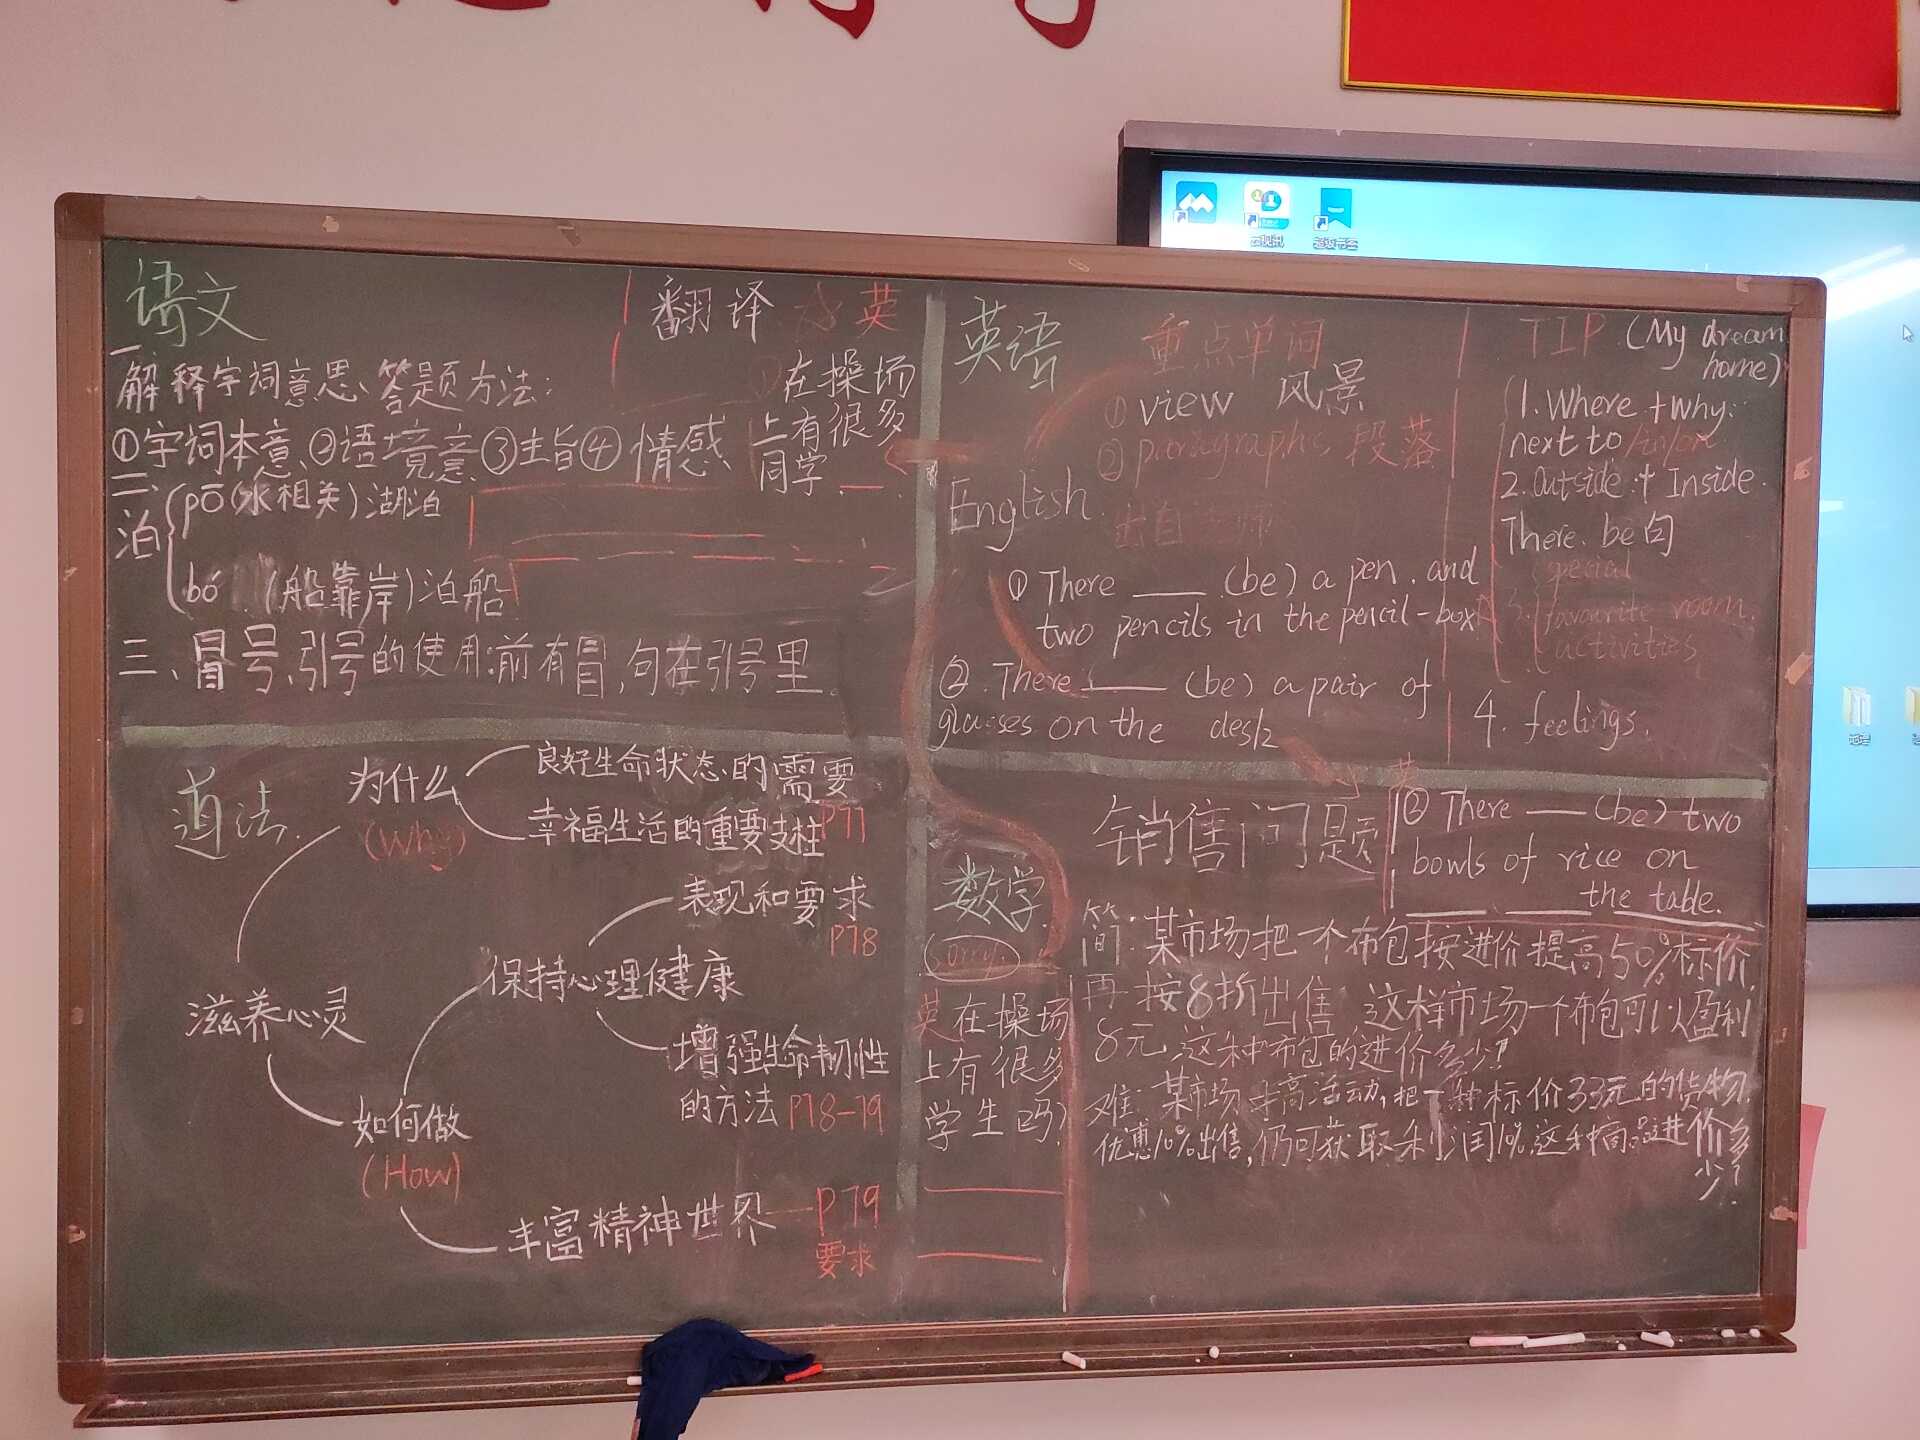 语文
一
解释字词意思、答题方法:
①字词本意、②语境意、③主旨④情感、
二、
泊
pō(水相关)湖泊
bó (船靠岸)泊船
三、冒号、引号的使用:前有冒,句在引号里。
翻译 英
①在操场
上有很多
同学.
英语
English.
重点单词
① view 风景
② paragraphs 段落
出自
① There ___ (be) a pen and
two pencils in the pencil-box
② There ___ (be) a pair of
glasses on the desk
TIP (My dream
home)
1. Where + why:
next to /in/on
2. Outside + Inside.
There be句
3.
special
favourite room.
activities
4. feelings.
道法.
滋养心灵
为什么
(Why)
良好生命状态的需要
幸福生活的重要支柱P77
如何做
(How)
保持心理健康
表现和要求
P78
增强生命韧性
的方法 P78-79
丰富精神世界—P79
要求
数学.
(Sorry.)
英在操场
上有很多
学生吗?
销售问题
英
② There ___ (be) two
bowls of rice on
the table.
简:某市场把一个布包按进价提高50%标价,
再按8折出售,这样市场一个布包可以盈利
8元,这种布包的进价多少?
难:某市场 高活动,把一种标价33元的货物,
优惠10%出售,仍可获取利润10%,这种商品进价多
少?